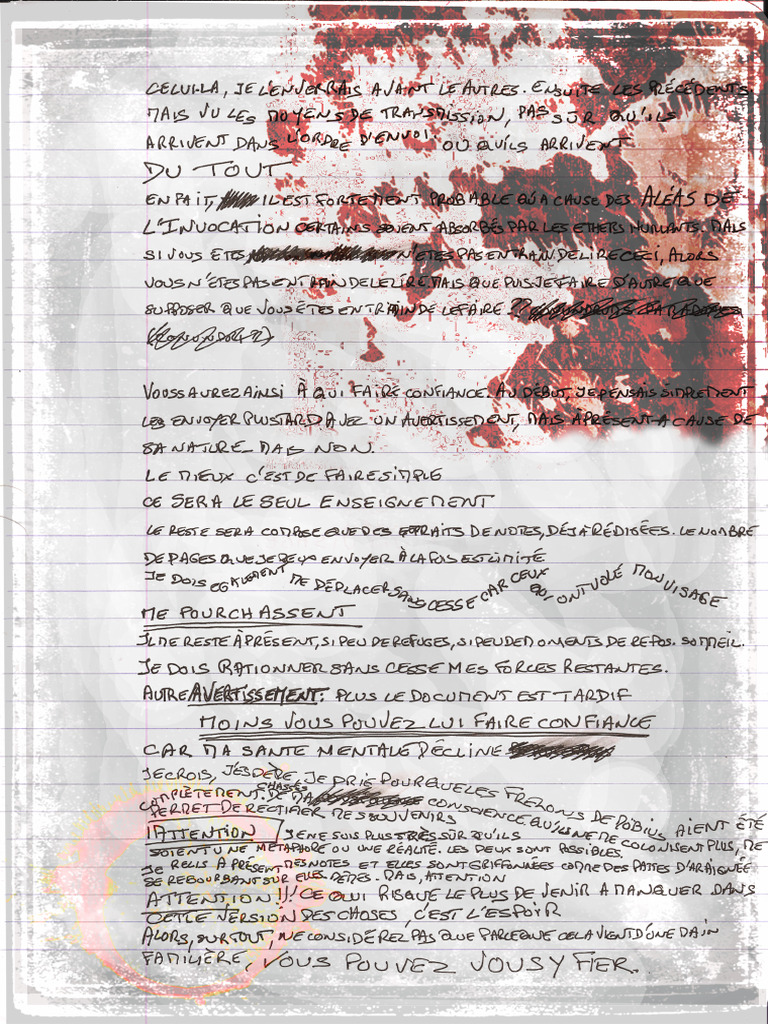 CELUI-LA, JE L'ENVERRAIS AVANT LE AUTRES. ENSUITE LES PRÉCÉDENTS
MAIS VU LES MOYENS DE TRANSMISSION, PAS SÛR QU'ILS
ARRIVENT DANS L'ORDRE D'ENVOI. OU QU'ILS ARRIVENT
DU TOUT
EN FAIT, IL EST FORTEMENT PROBABLE QU'A CAUSE DES ALÉAS DE
L'INVOCATION CERTAINS SOIENT ABSORBÉS PAR LES ETHERS HURLANTS. MAIS
SI VOUS ETES N'ETES PAS EN TRAIN DE LIRE CECI, ALORS
VOUS N'ÊTES PAS EN TRAIN DE LE LIRE. MAIS QUE PUIS JE FAIRE D'AUTRE QUE
SUPPOSER QUE VOUS ÊTES EN TRAIN DE LE FAIRE ??
VOUS SAUREZ AINSI À QUI FAIRE CONFIANCE. AU DÉBUT, JE PENSAIS SIMPLEMENT
LES ENVOYER PLUS TARD AVEC UN AVERTISSEMENT, MAIS À PRÉSENT A CAUSE DE
SA NATURE MAIS NON.
LE MIEUX C'EST DE FAIRE SIMPLE
CE SERA LE SEUL ENSEIGNEMENT
LE RESTE SERA COMPOSE QUE DES EXTRAITS DE NOTES, DÉJÀ RÉDIGÉES. LE NOMBRE
DE PAGES QUE JE PEUX ENVOYER À LA FOIS EST LIMITÉ
JE DOIS EGALEMENT ME DÉPLACER SANS CESSE CAR CEUX QUI ONT VOLÉ MON VISAGE
ME POURCHASSENT
IL ME RESTE À PRÉSENT, SI PEU DE REFUGES, SI PEU DE MOMENTS DE REPOS. SOMMEIL.
JE DOIS RATIONNER SANS CESSE MES FORCES RESTANTES.
AUTRE AVERTISSEMENT: PLUS LE DOCUMENT EST TARDIF
MOINS VOUS POUVEZ LUI FAIRE CONFIANCE
CAR MA SANTE MENTALE DÉCLINE
JE CROIS, J'ESPÈRE, JE PRIE POUR QUE LES FRELONS DE MÖBIUS AIENT ÉTÉ
COMPLÈTEMENT CHASSÉS DE MA CONSCIENCE QU'ILS NE ME COLONISENT PLUS, ME
PERMET DE RECTIFIER MES SOUVENIRS
!ATTENTION JE NE SUIS PLUS TRÈS SÛR QU'ILS
SOIENT UNE MÉTAPHORE OU UNE RÉALITÉ. LES DEUX SONT POSSIBLES.
JE RELIS A PRÉSENT MES NOTES ET ELLES SONT GRIFFONNÉES COMME DES PATTES D'ARAIGNÉE
SE REBOURBANT SUR ELLES MÊMES. MAIS, ATTENTION
ATTENTION!!! CE QUI RISQUE LE PLUS DE VENIR A MANQUER DANS
CETTE VERSION DES CHOSES, C'EST L'ESPOIR
ALORS, SURTOUT, NE CONSIDÉREZ PAS QUE PARCE QUE CELA VIENT D'UNE MAIN
FAMILIÈRE, VOUS POUVEZ VOUS Y FIER.